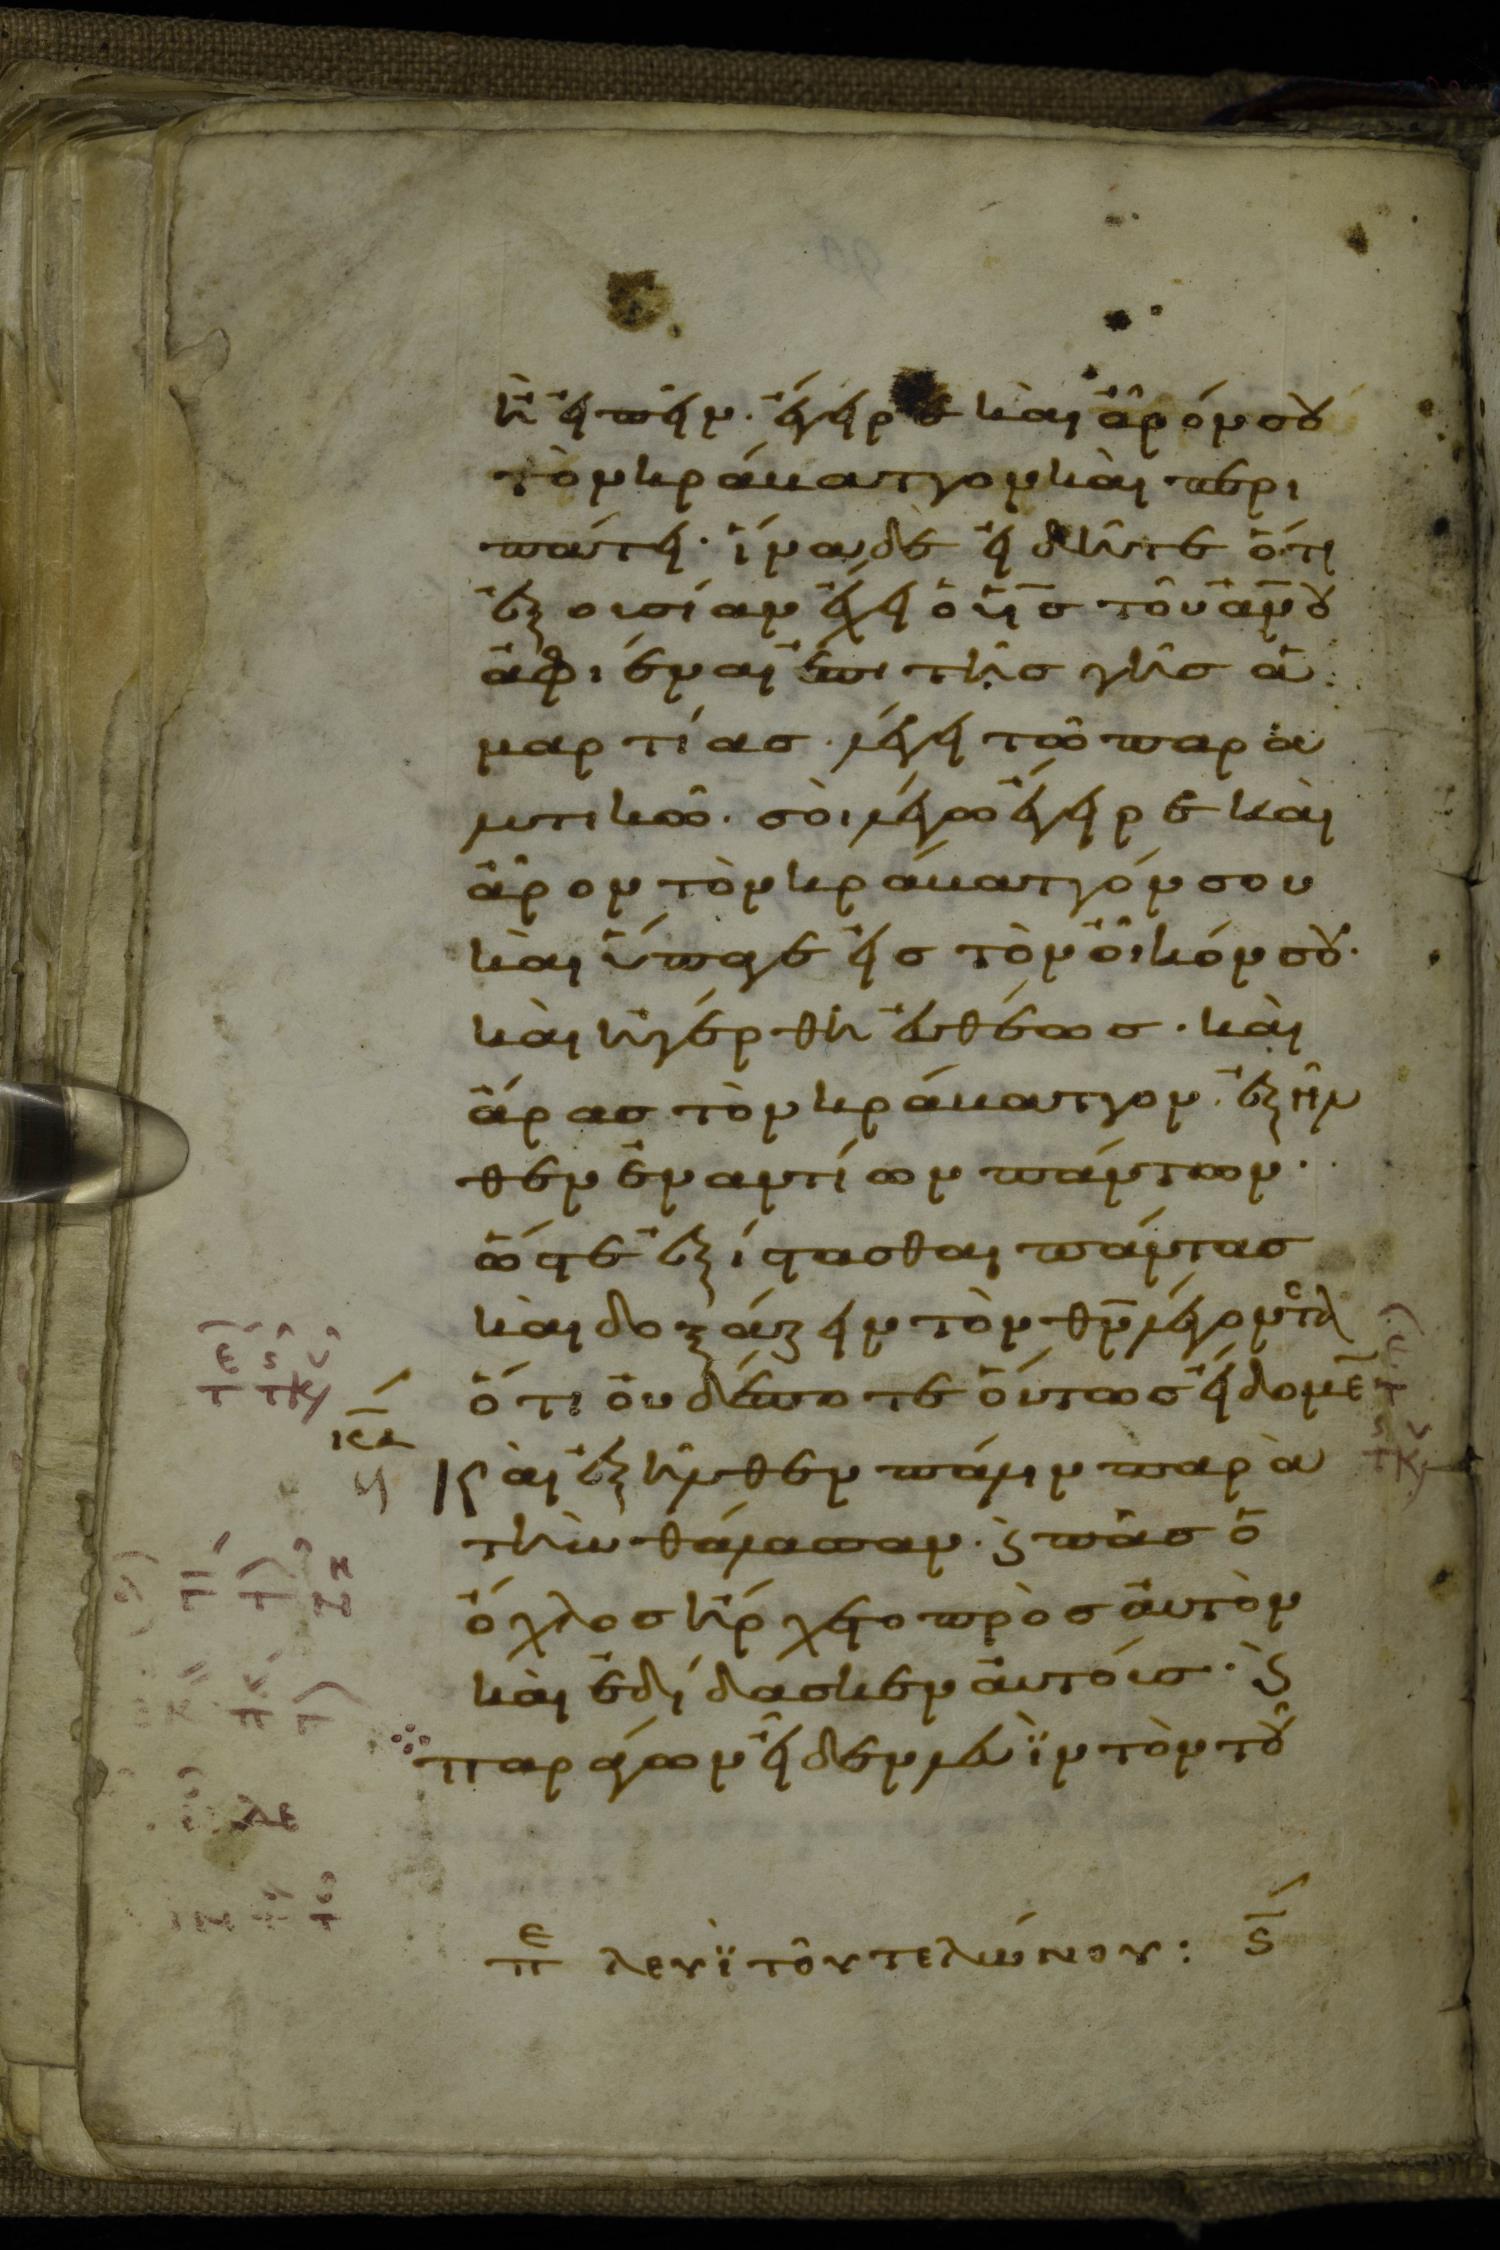 ἢ εἰπεῖν· ἔγειρε καὶ ἆρόν σου
τὸν κράβαττον καὶ περι
πάτει· ἵνα δὲ εἰδῆτε ὅτι
ἐξουσίαν ἔχει ὁ υἱ̅ς τοῦ ἀν̅ου
ἀφιέναι ἐπὶ τῆς γῆς ἁ
μαρτίας· λέγει τῷ παρα
λυτικῷ· σοὶ λέγω ἔγειρε καὶ
ἆρον τὸν κράβαττόν σου
καὶ ὕπαγε εἰς τὸν οἶκόν σου·
καὶ ἠγέρθη εὐθέως· καὶ
ἄρας τὸν κράβαττον, ἐξῆλ
θεν ἐναντίων πάντων·
ὥστε ἐξίστασθαι πάντας
καὶ δοξάζειν τὸν θν̅ λέγοντ(ας)
ὅτι οὐδέποτε οὕτως εἴδομε̅
κα
Καὶ ἐξῆλθεν πάλιν παρὰ
τὴν θάλασσαν· ϗ πᾶς ὁ
ὄχλος ἤρχετο πρὸς αὐτὸν
καὶ ἐδίδασκεν αὐτοὺς· ϗ
παράγων εἶδεν λευῒν τὸν τοῦ
πε λευῒ τοῦ τελώνου: ϛ̅